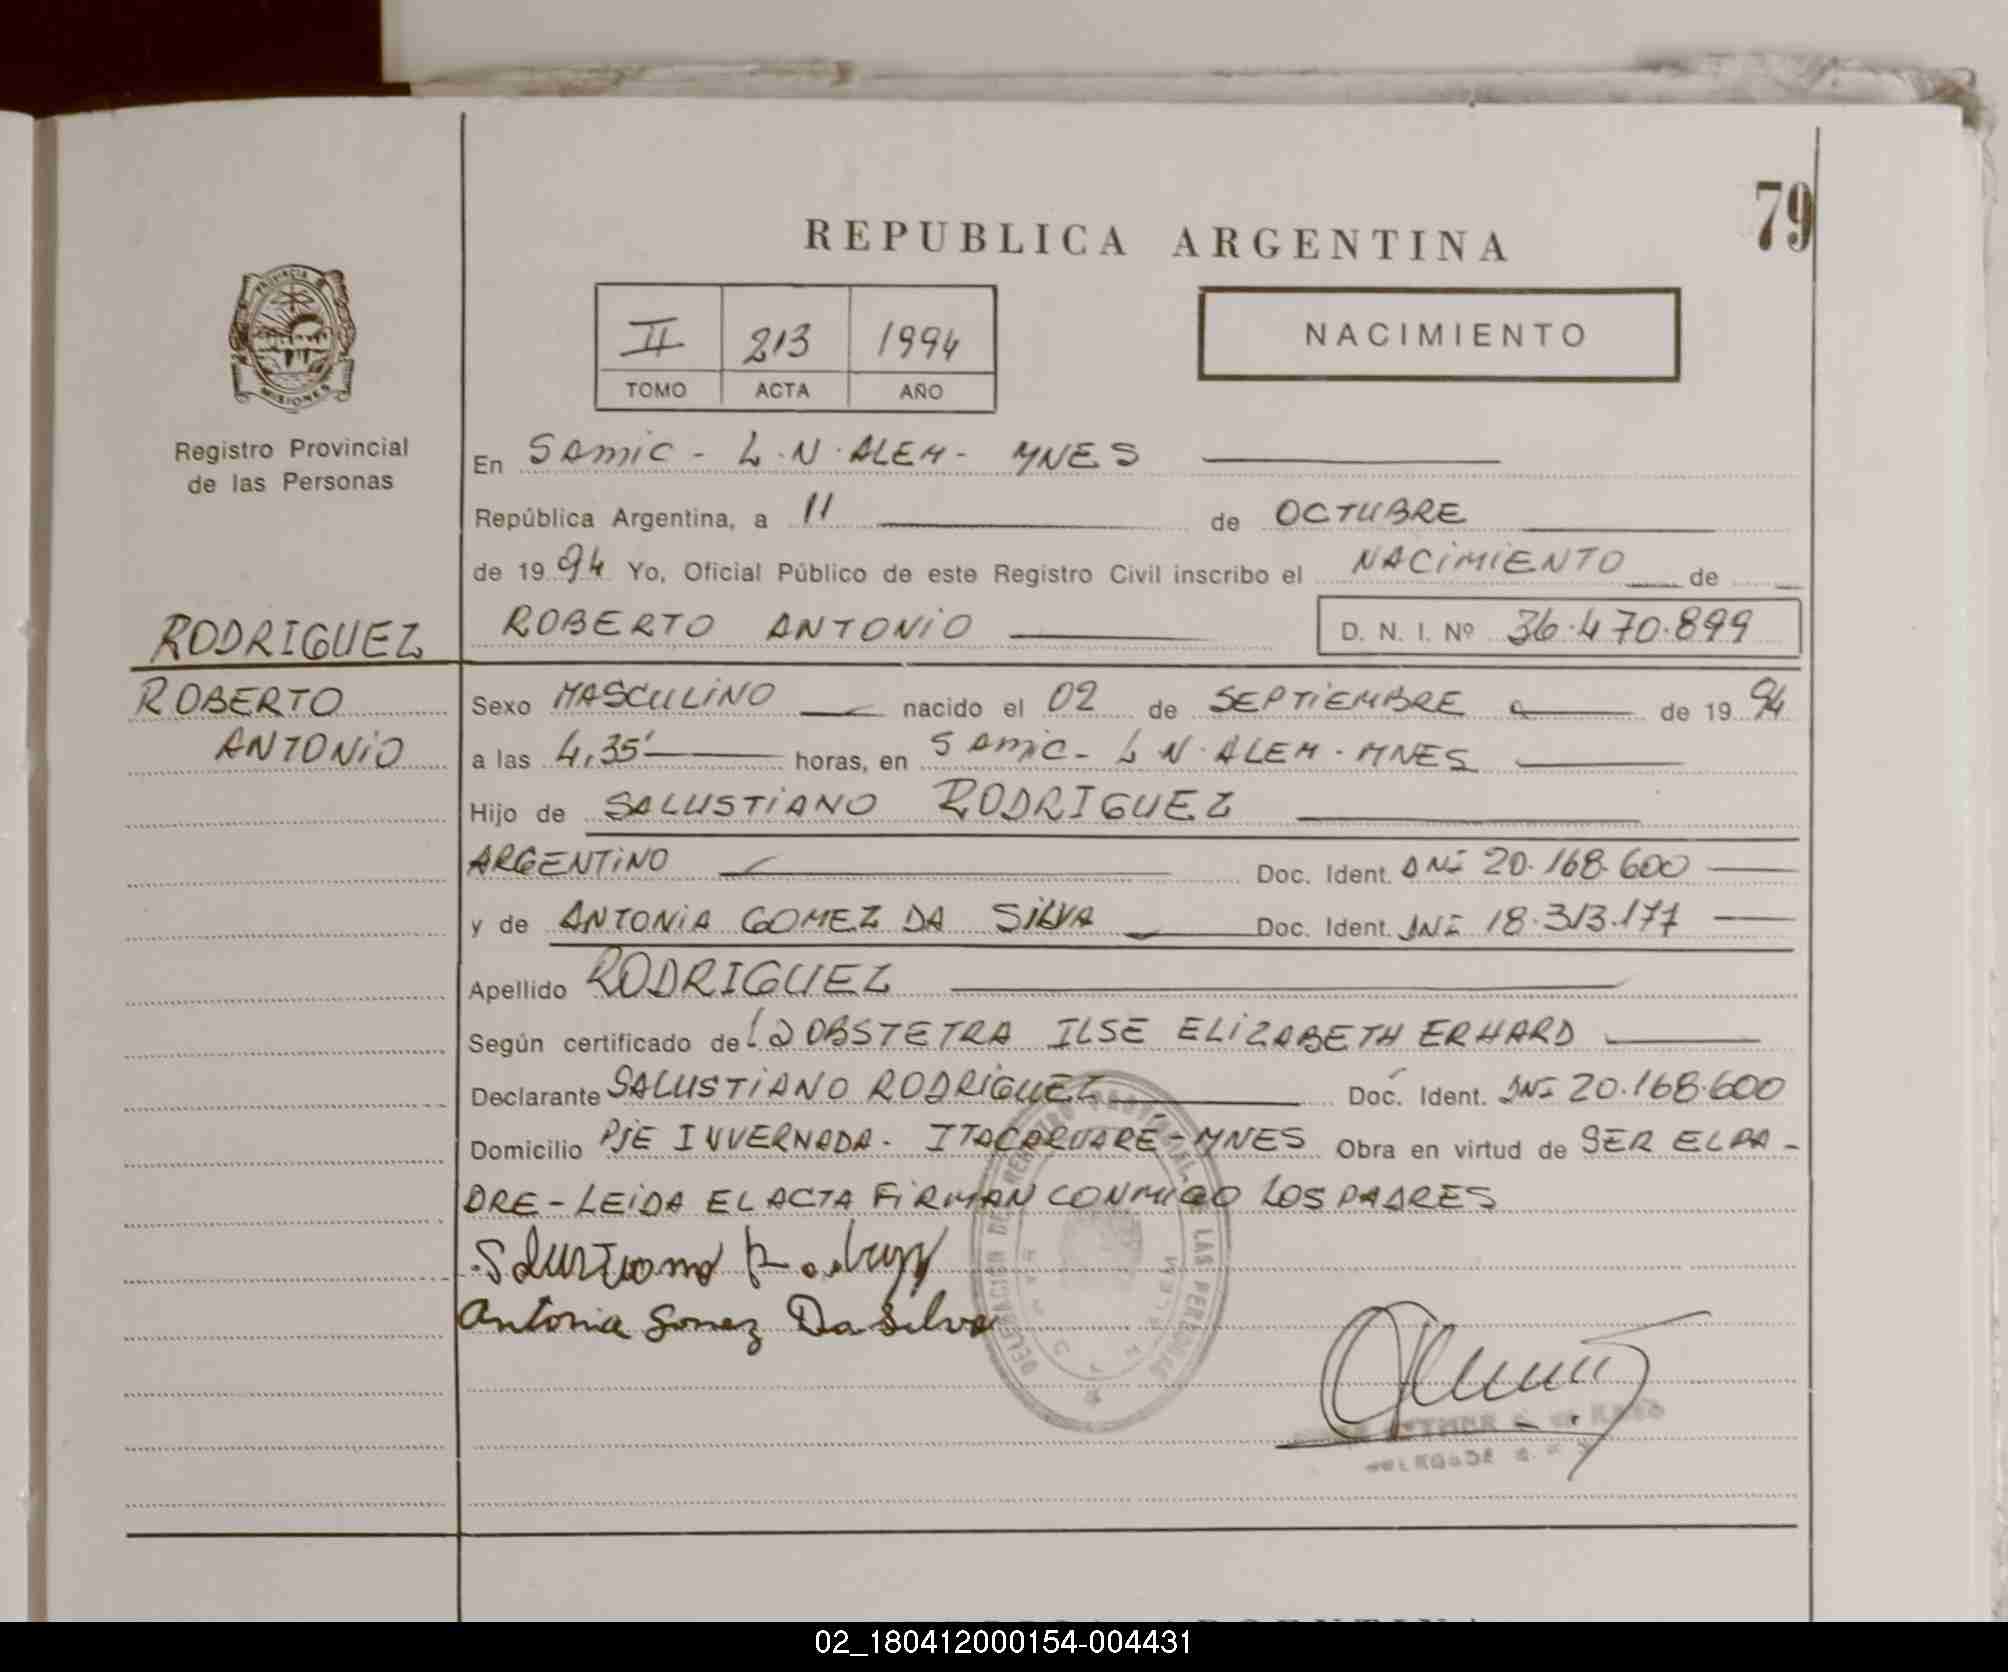 79
REPUBLICA ARGENTINA
PROVINCIA
MISIONES
II 213 1994
TOMO ACTA AÑO
NACIMIENTO
Registro Provincial
de las Personas
En SAMIC - L.N. ALEM - MNES
República Argentina, a 11 de OCTUBRE
de 1994 Yo, Oficial Público de este Registro Civil inscribo el NACIMIENTO de
RODRIGUEZ
ROBERTO ANTONIO D. N. I. Nº 36.470.899
ROBERTO
ANTONIO
Sexo MASCULINO nacido el 02 de SEPTIEMBRE de 1994
a las 4,35' horas, en SAMIC - L N. ALEM - MNES
Hijo de SALUSTIANO RODRIGUEZ
ARGENTINO Doc. Ident. DNI 20.168.600
y de ANTONIA GOMEZ DA SILVA Doc. Ident. DNI 18.313.177
Apellido RODRIGUEZ
Según certificado de La OBSTETRA ILSE ELIZABETH ERHARD
Declarante SALUSTIANO RODRIGUEZ Doc. Ident. DNI 20.168.600
Domicilio PJE INVERNADA - ITACARUARÉ - MNES Obra en virtud de SER EL PA-
DRE - LEIDA EL ACTA FIRMAN CONMIGO LOS PADRES
Salustiano Rodriguez
Antonia Gomez Da Silva
LAS PERSONAS
02_180412000154-004431